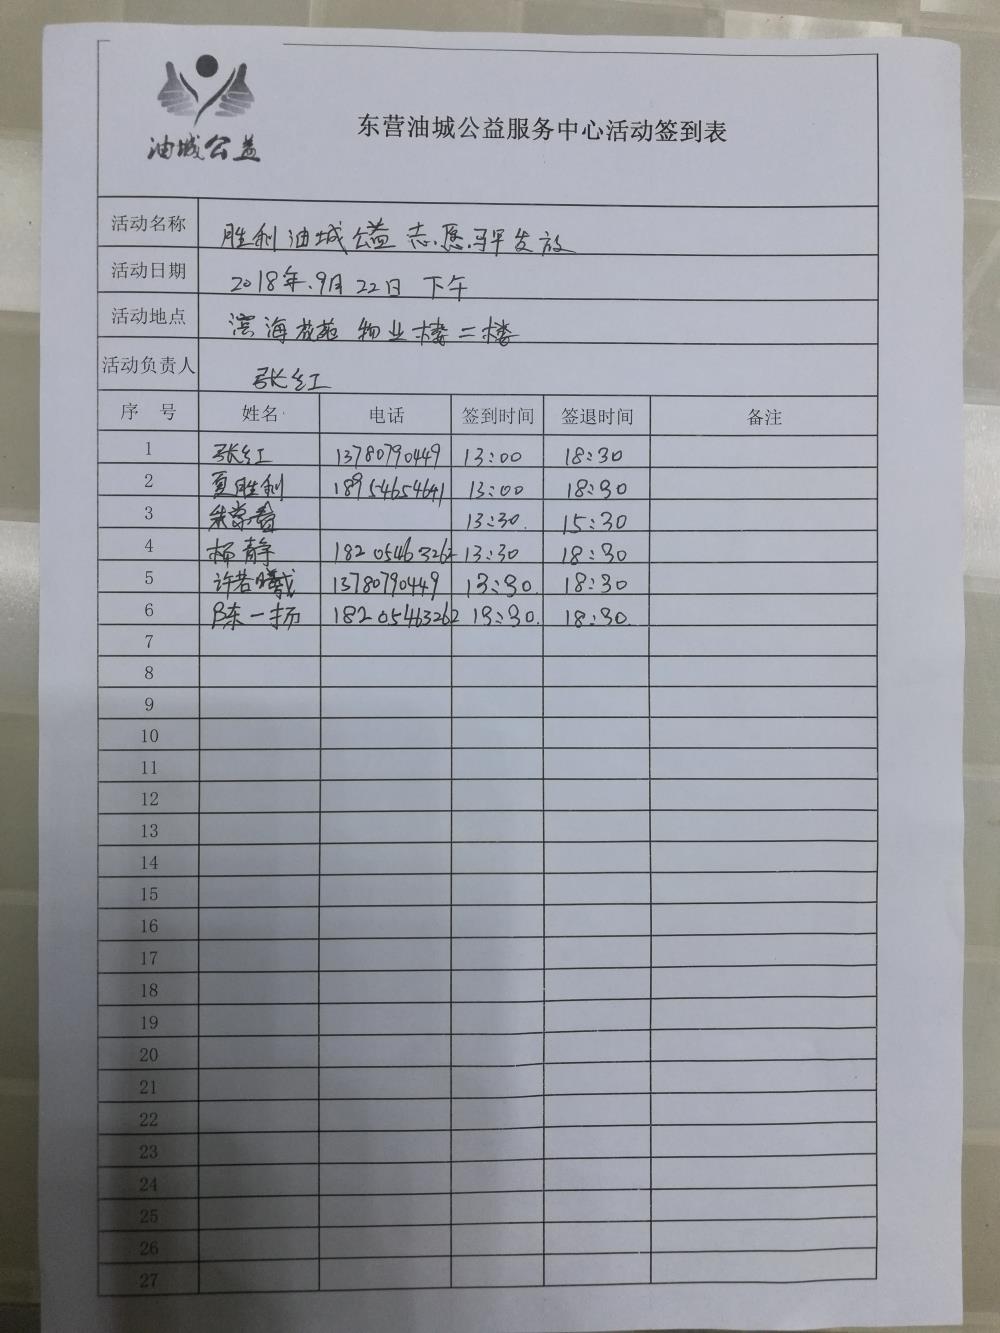 油城公益
东营油城公益服务中心活动签到表
活动名称 胜利油城公益志愿 发放
活动日期 2018年.9月22日 下午
活动地点 滨海花苑 物业楼二楼
活动负责人 张红
序 号 姓名 电话 签到时间 签退时间 备注
1 张红 13780790449 13:00 18:30
2 夏胜利 18954654641 13:00 18:30
3 朱 13:30. 15:30
4 杨静 18205463262 13:30 18:30
5 许若曦 13780790449 13:30. 18:30
6 陈一扬 18205463262 13:30. 18:30.
7
8
9
10
11
12
13
14
15
16
17
18
19
20
21
22
23
24
25
26
27